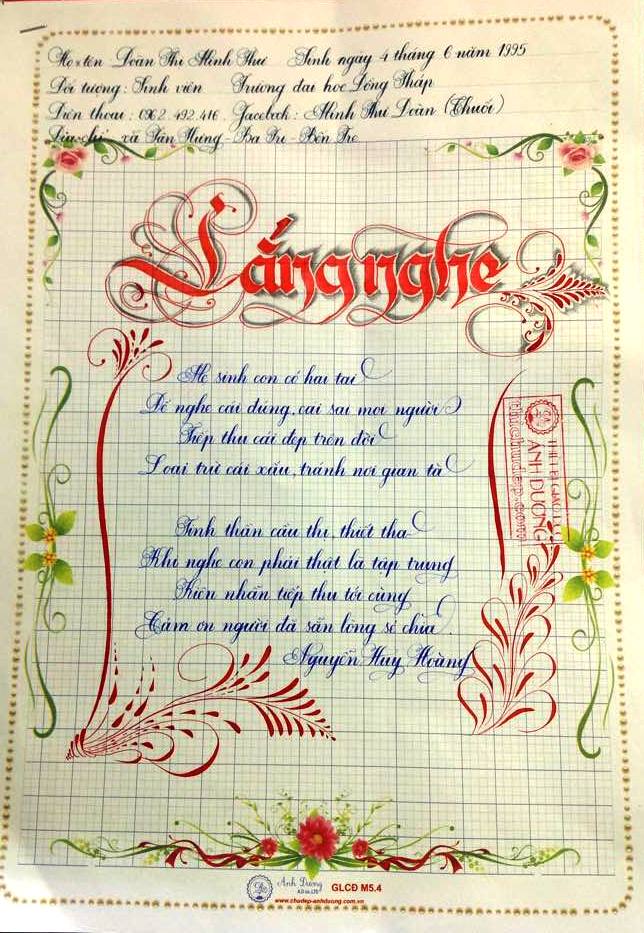 Họ tên Đoàn Thị Minh Thư Sinh ngày 4 tháng 6 năm 1995
Đối tượng: Sinh viên Trường đại học Đồng Tháp
Điện thoại: 0962.492.416. Facebook: Minh Thư Đoàn (Thuối)
Địa chỉ: xã Tân Hưng - Ba Tri - Bến Tre
Lắng nghe
Mẹ sinh con có hai tai
Để nghe cái đúng, cái sai mọi người
Tiếp thu cái đẹp trên đời
Loại trừ cái xấu, tránh nơi quan tà
Tinh thần cầu thị, thiết tha
Khi nghe con phải thật là tập trung
Kiên nhẫn tiếp thu tới cùng
Cảm ơn người đã sẵn lòng sẻ chia.
Nguyễn Huy Hoàng
ÁNH DƯƠNG
Ánh Dương
GLCĐ M5.4
www.chudep-anhduong.com.vn